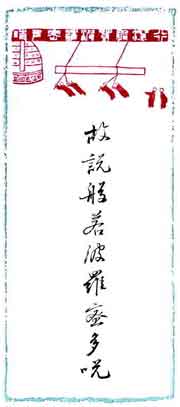 故說般若波羅蜜多咒